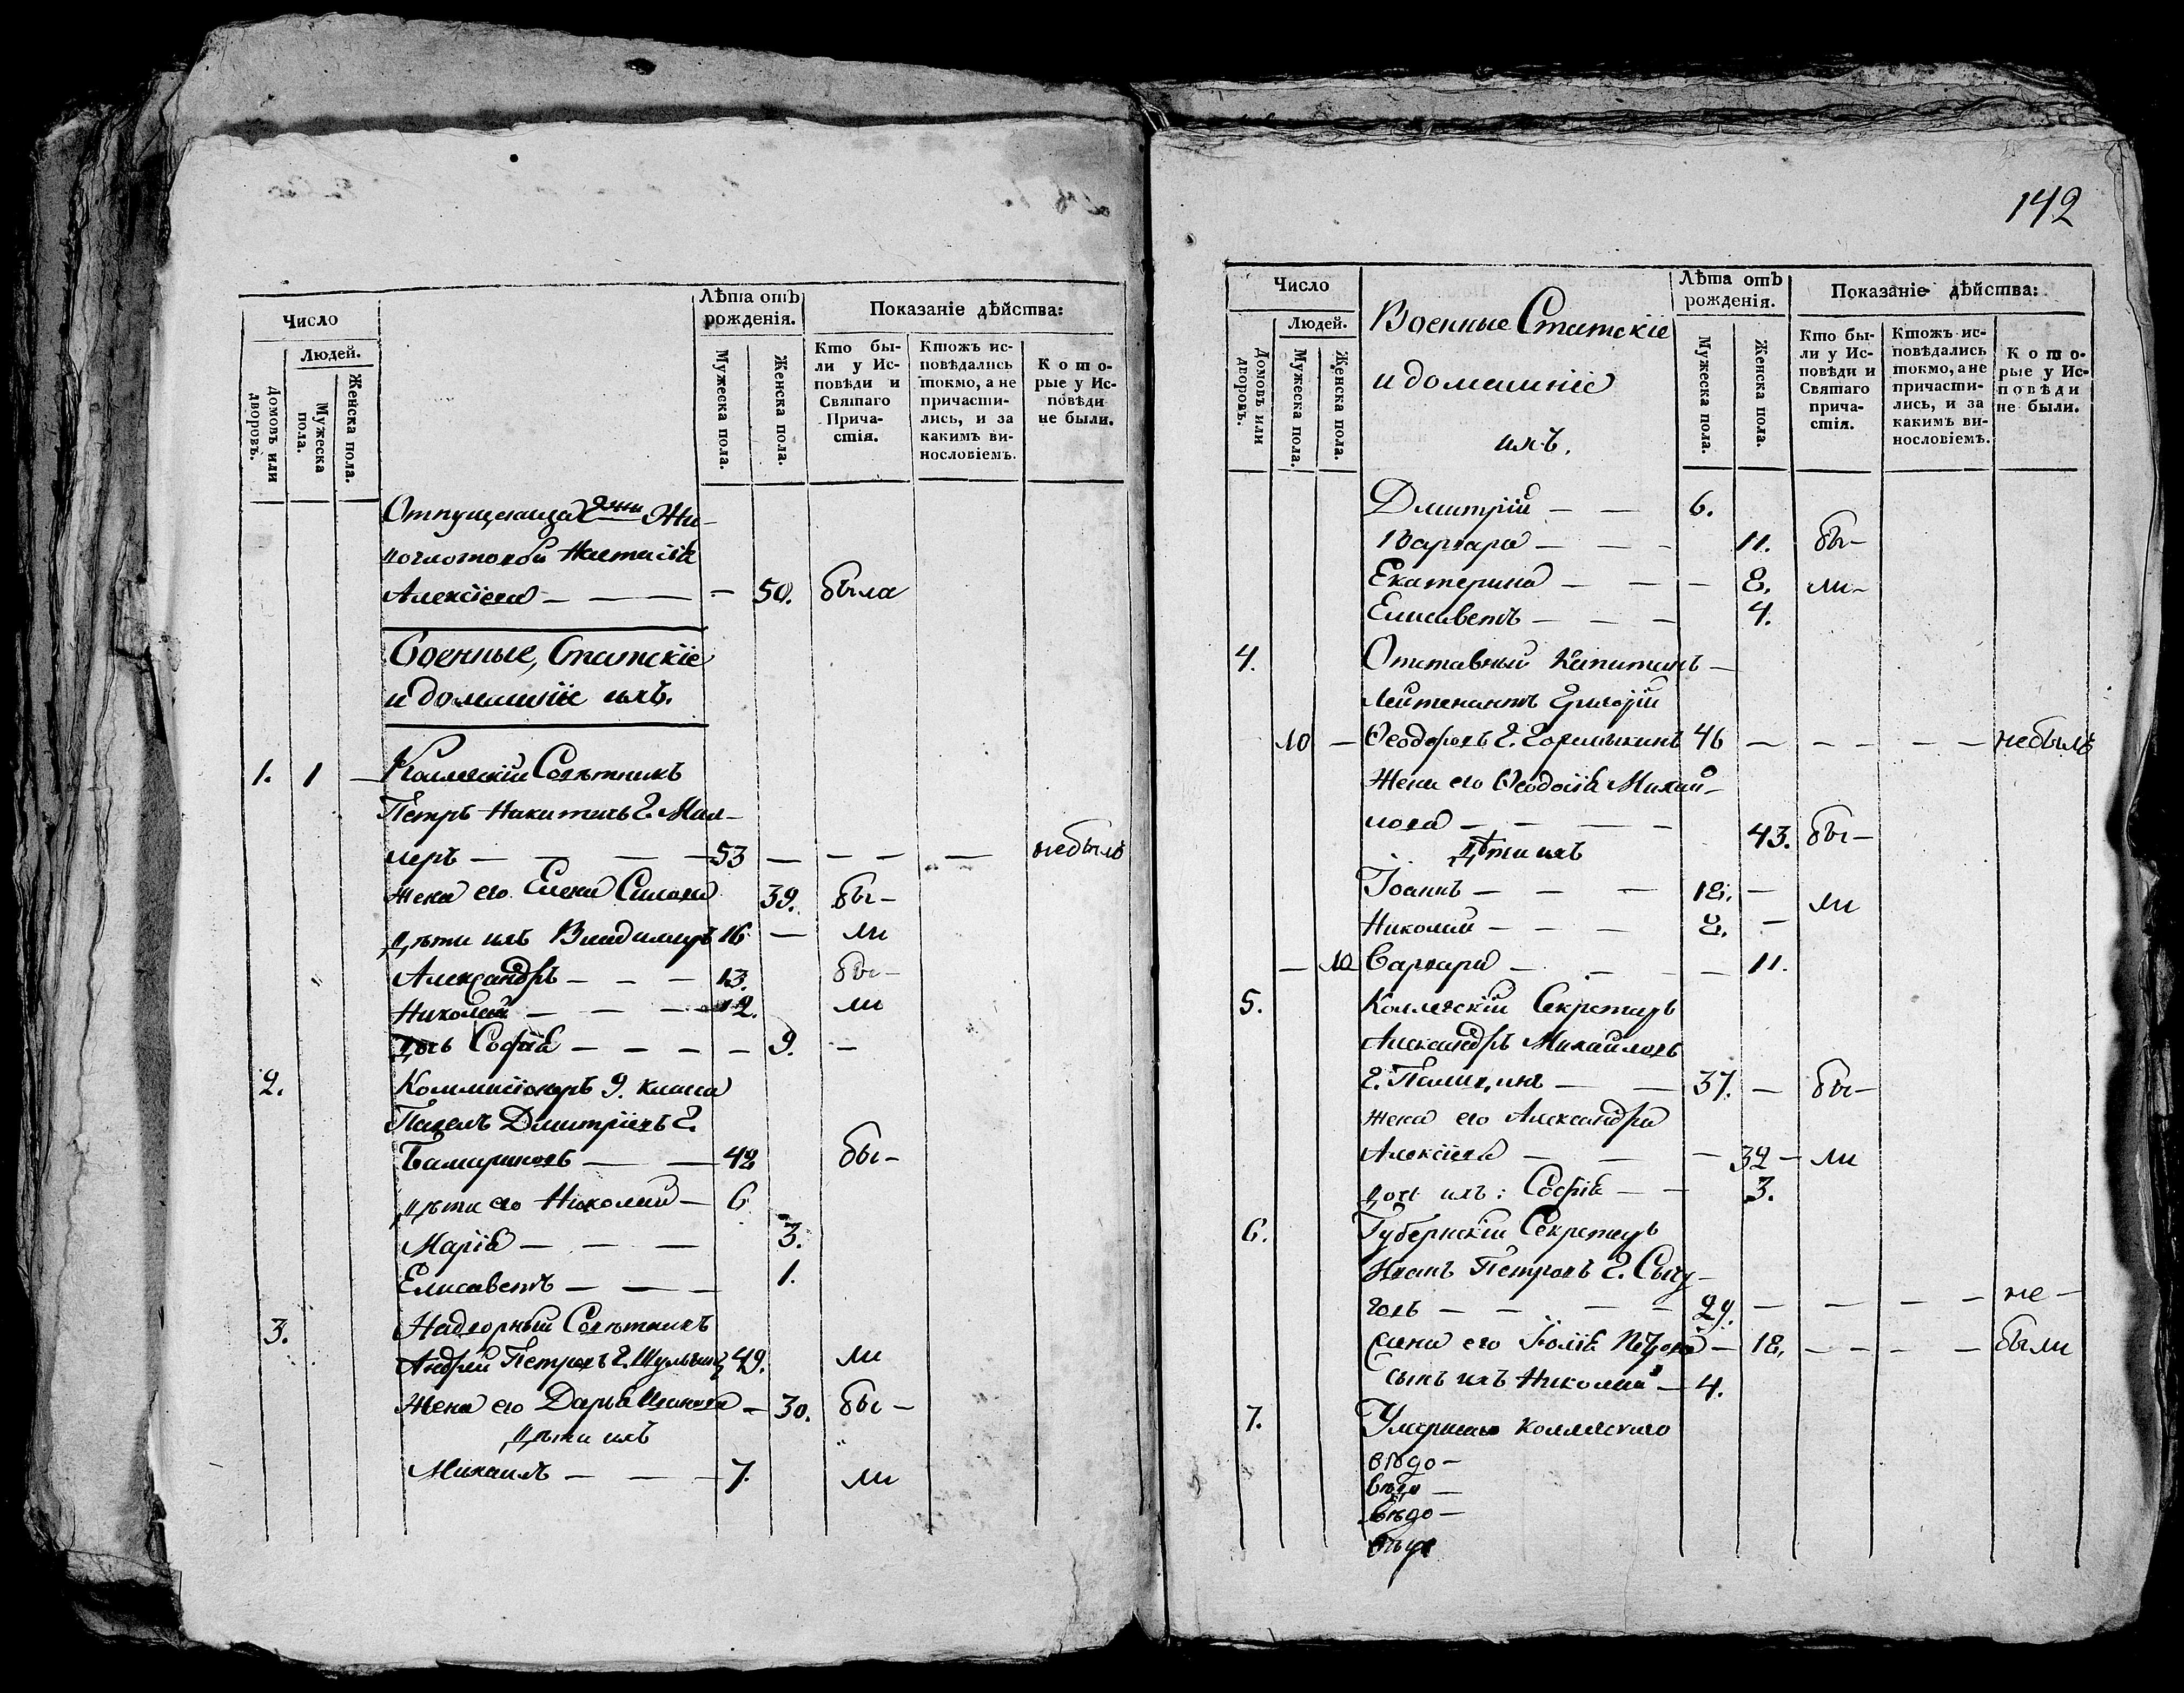 Число
Людей.
Домовъ или дворовъ.
Мужеска пола.
Женска пола.
Лѣта отъ рожденія.
Мужеска пола.
Женска пола.
Показаніе дѣйства:
Кто бы-
ли у Ис-
повѣди и
Святаго
Прича-
стія.
Ктожъ ис-
повѣдались
токмо, а не
причасти-
лись, и за
какимъ ви-
нословіемъ.
Кото-
рые у Ис-
повѣди
не были.
Настасія
Алексіева — — — — 50. была
Военные, Статскіе
и домашніе ихъ.
1. 1 — Коллежскій Совѣтникъ
Петръ Никитинъ Г. Мил-
леръ — — — — 53 — — — — небылъ
жена его Елена Силова 39. бы-
дѣти ихъ Владимиръ 16 — ли
Александръ — — — 13. бы-
Николай — — — 12. ли
дочь Софія — — — — 9. —
2. Коммисіонеръ 9. класса
Павелъ Дмитріевъ Г.
— — 42 бы-
дѣти его Николай — 6
Марія — — — 3.
Елисаветъ — — — 1.
3. Надворный Совѣтникъ
Андрей Петровъ Г. 49. ли
Жена его Дарья Иванова — 30. бы-
Дѣти ихъ
Михаилъ — — — 7. ли
142
Число
Людей.
Домовъ или дворовъ.
Мужеска пола.
Женска пола.
Военные Статскіе
и домашніе
ихъ.
Лѣта отъ
рожденія.
Мужеска пола.
Женска пола.
Показаніе дѣйства:
Кто бы-
ли у Ис-
повѣди и
Святаго
прича-
стія.
Ктожъ ис-
повѣдались
токмо, а не
причасти-
лись, и за
какимъ ви-
нословіемъ.
Кото-
рые у Ис-
повѣди
не были.
Дмитрій — — 6.
Варвара — — — 11. бы-
Екатерина — — — 8. ли-
Елисаветъ — — — 4.
4. Отставный Капитанъ-
Лейтенантъ Григорій
10 — Ѳеодоровъ Г. Горемыкинъ 46 — — — — — небылъ
Жена его Ѳеодосія Михай-
лова — — — — 43. бы-
Дѣти ихъ
Іоаннъ — — — 18. — ли
Николай — — — 8. —
— 10 Варвара — — — 11.
5. Коллежскій Секретарь
Александръ Михайловъ
— — 37. — бы-
жена его Александра
Алексіева — — — 32 — ли
дочь ихъ: Софія — — 3.
6. Губернскій Секретарь
Иванъ Петровъ Г. Сычу-
говъ — — — — 29. — — — — не-
жена его Юлія Петрова — 18. — — — — были
Сынъ ихъ Николай — 4.
7. Умершаго коллежскаго
вѣдо-
вѣдо-
вѣдо-